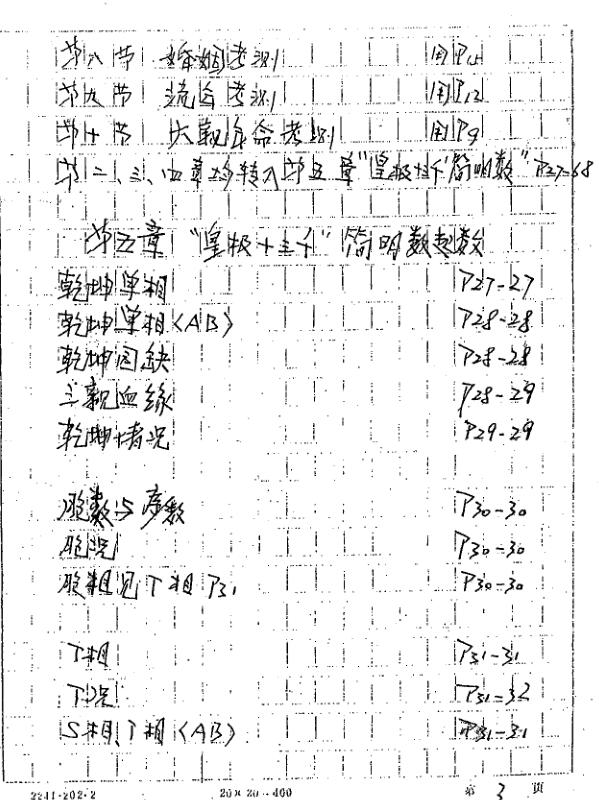 第八节 婚姻考测 同P12
第九节 流年考测 同P12
第十节 六亲年命考测 同P9
第二、三、四章均转入第五章“皇极十三千简明数”P27-68
第五章 “皇极十三千”简明数起数
乾坤单相 P27-27
乾坤单相〈AB〉 P28-28
乾坤囗缺 P28-28
三親血緣 P28-29
乾坤情况 P29-29
胞数与序数 P30-30
胞况 P30-30
胞相见T相P31 P30-30
T相 P31-31
T况 P31-32
S相、T相〈AB〉 P31-31
2241-202-2 20×20=400 第 3 页